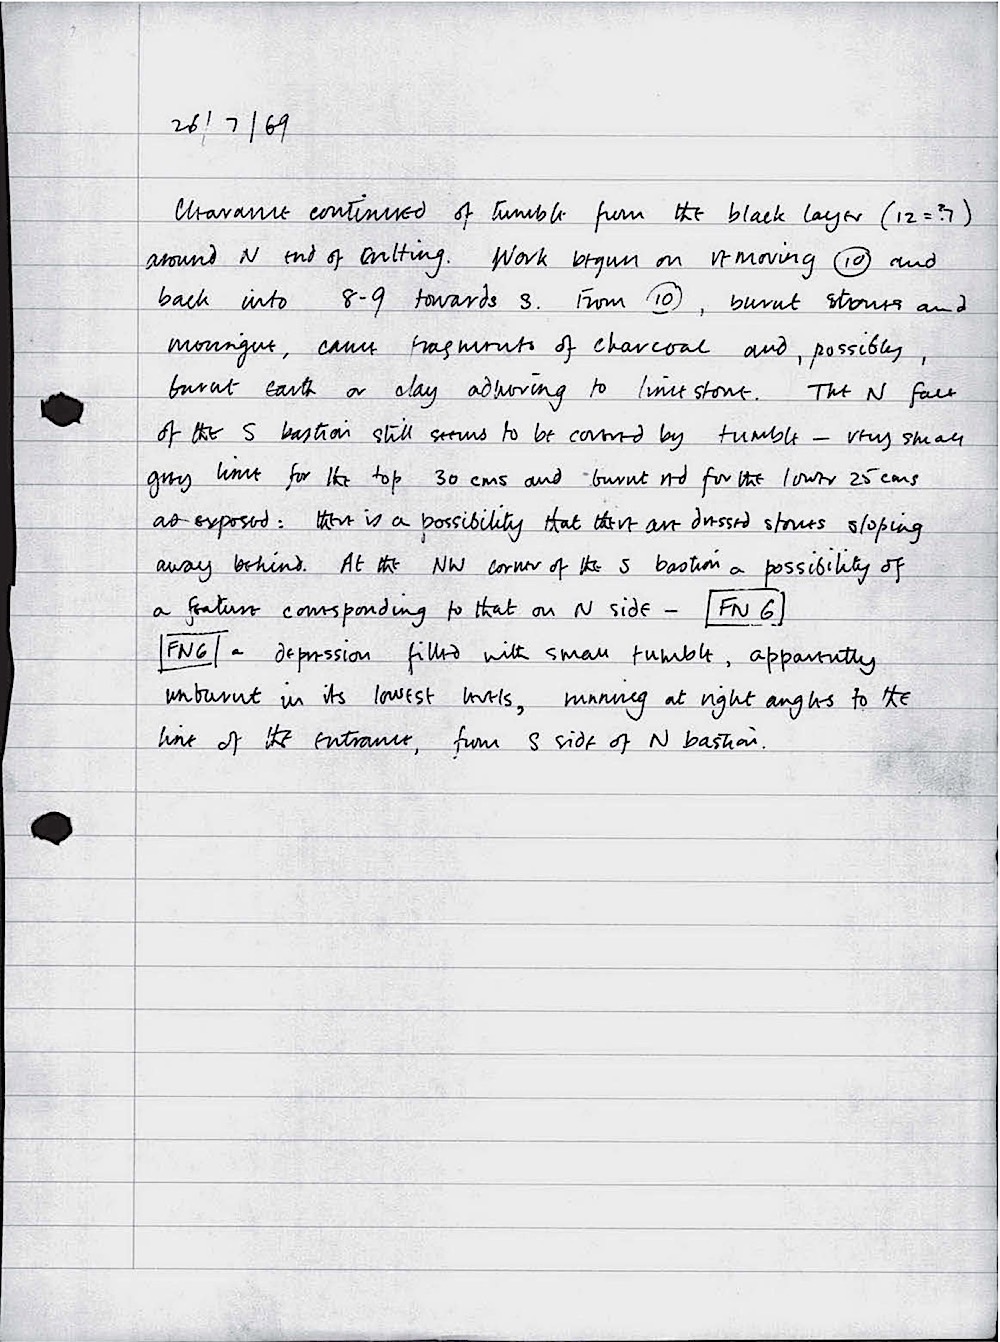 26/7/69
Clearance continued of tumble from the black layer (12=?7)
around N end of cutting. Work begun on removing ⑩ and
back into 8-9 towards S. From ⑩, burnt stones and
meringue, came fragments of charcoal and, possibly,
burnt earth or clay adhering to limestone. The N face
of the S bastion still seems to be covered by tumble – very small
grey lime for the top 30 cms and burnt red for the lower 25 cms
as exposed: there is a possibility that there are dressed stones sloping
away behind. At the NW corner of the S bastion a possibility of
a feature corresponding to that on N side – [FN 6]
[FN6] a depression filled with small tumble, apparently
unburnt in its lowest levels, running at right angles to the
line of the entrance, from S side of N bastion.